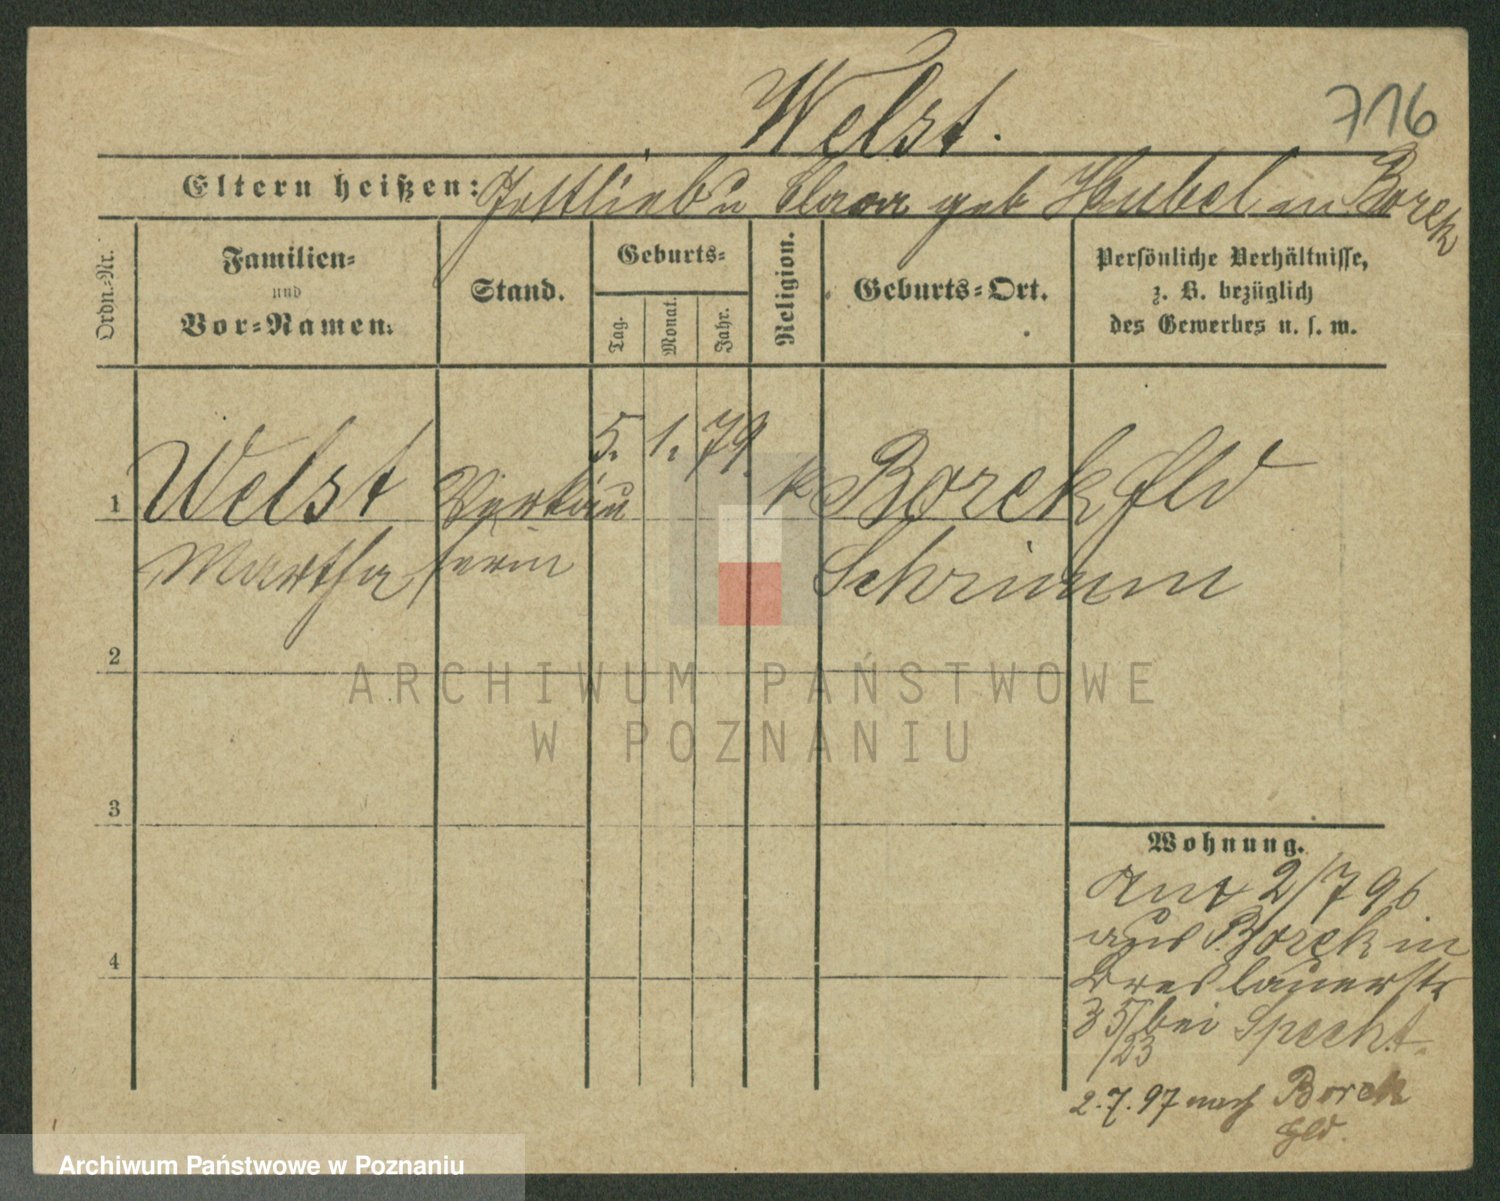 716
Welst.
Eltern heißen: Gottlieb u Clara geb Hubel in Borek
Ordn.-Nr.
Familien- und Vor-Namen.
Stand.
Geburts-
Tag.
Monat.
Jahr.
Religion.
Geburts-Ort.
Persönliche Verhältnisse,
z. B. bezüglich
des Gewerbes u. s. w.
1 Welst Verkäu 5. 1. 79. k Borek Hld
Martha ferin Schrimm
2
3
4
Wohnung.
2/7 96
aus Borek in
Breslauerstr
35/ bei Specht.
/23
2.7.97 nach Borek
Hld.
ARCHIWUM PAŃSTWOWE
W POZNANIU
Archiwum Państwowe w Poznaniu